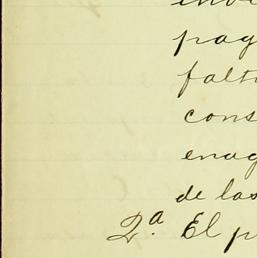 pag
falt
cons
enag
de las
2.ª El p